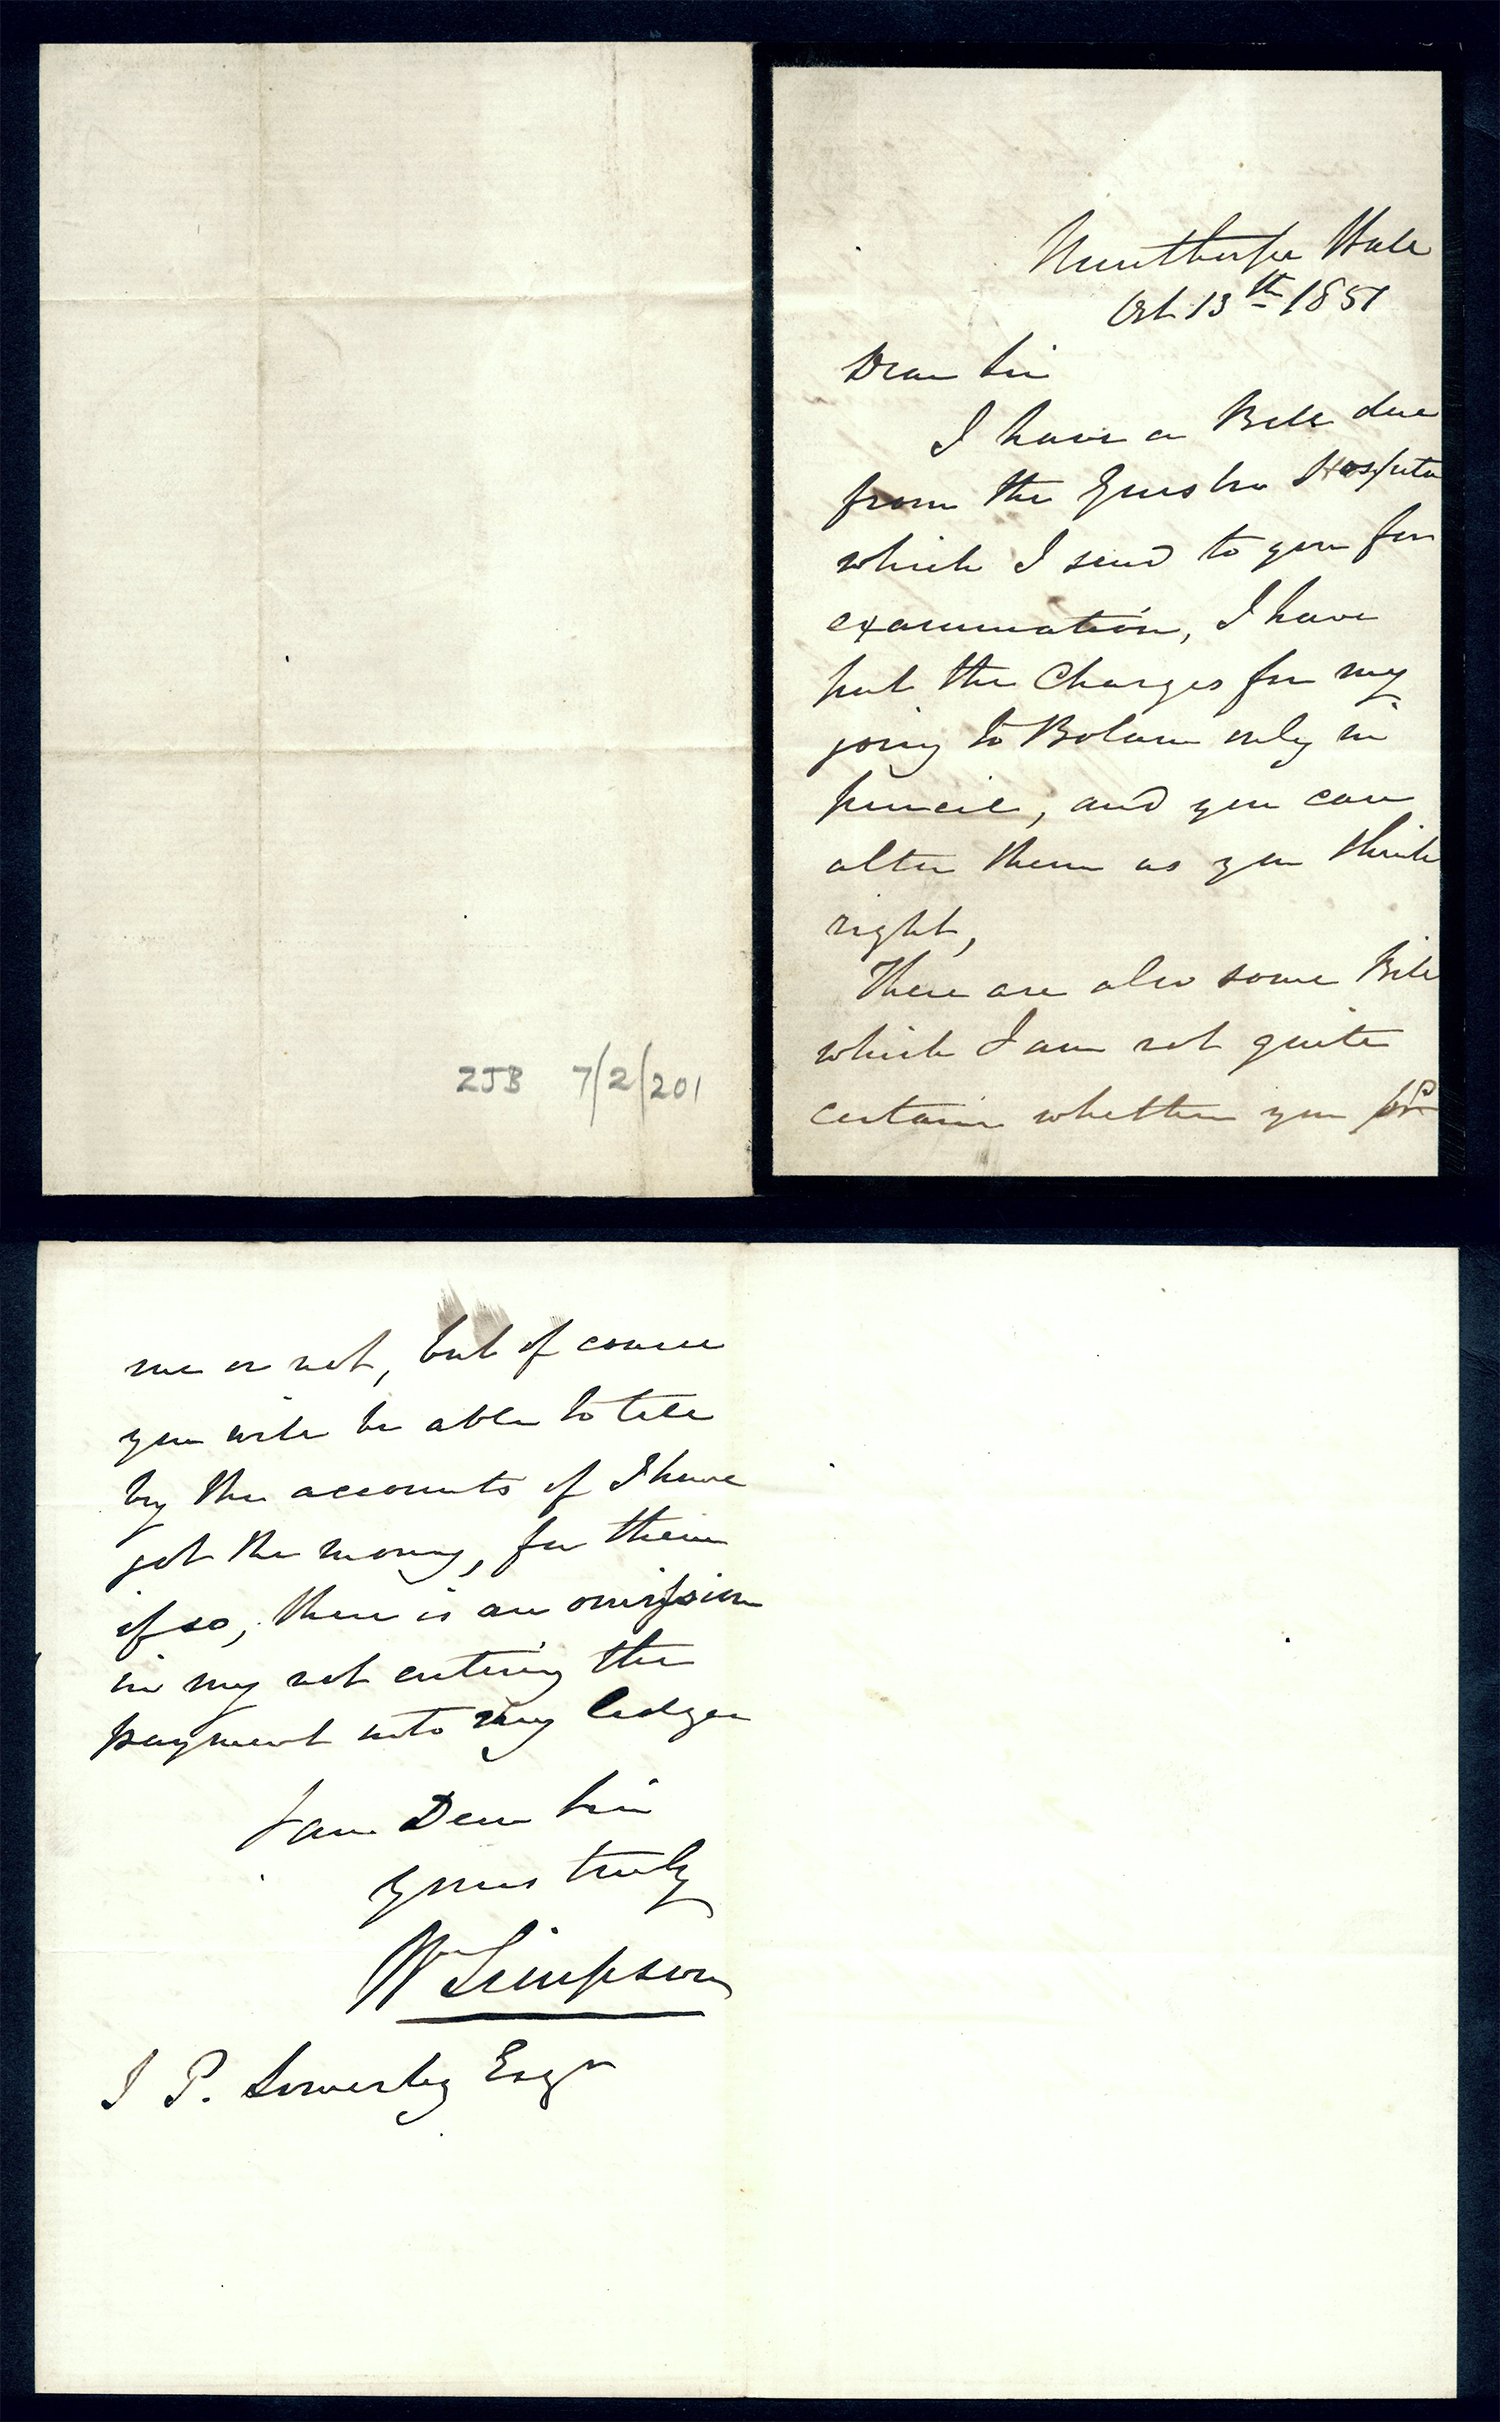 ZJB 7/2/201
Nunthorpe Hall
Oct 13th 1851
Dear Sir
I have a Bill due
from the Guisbro Hospita
which I send to you for
examination, I have
put the Charges for my
going to Bolam only in
pencil, and you can
alter them as you think
right,
There are also some Bills
which I am not quite
certain whether you
me or not, but of course
you will be able to tell
by the accounts if I have
got the money, for them
if so, there is an omission
in my not entering the
payment into my ledger
I am Dear Sir
yours truly
Wm Simpson
J P. Sowerby Esqr